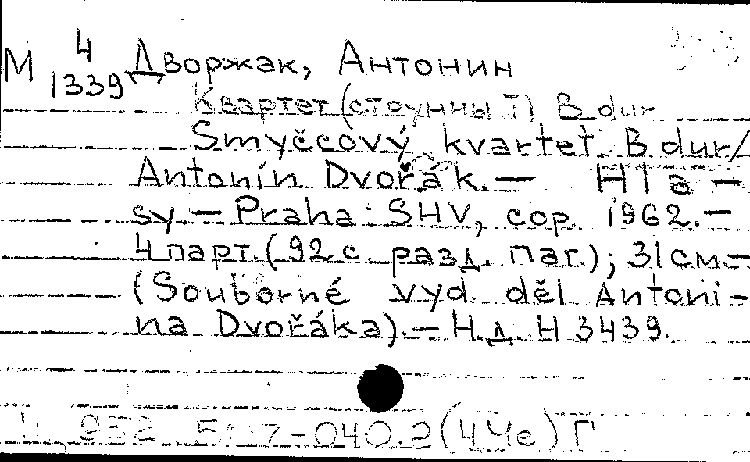 М 4 Дворжак, Антонин
1339
Квартет (струнный) B dur
Smyčcový kvartet B dur/
Antonín Dvořák. — Hla-
sy. — Praha: SHV, cop. 1962. —
4 парт. (92 с. разд. паг.); 31 см. —
(Souborné vyd. děl Antoni-
na Dvořáka). — Н.д. H 3439.
(4Че) Г